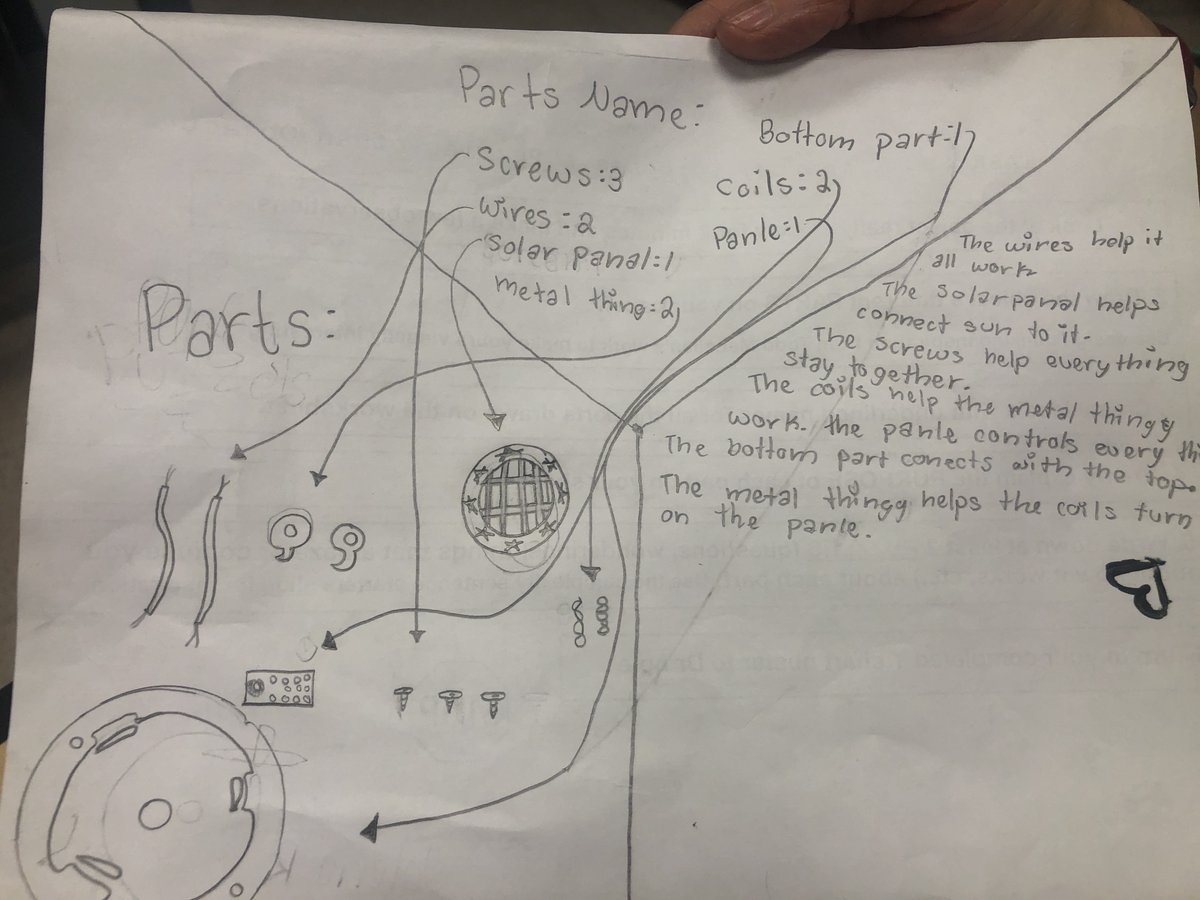 Parts Name:
Screws:3
wires:2
Solar Panal:1
metal thing:2
Bottom part:1
coils:2
Panle:1
Parts:
The wires help it
all work
The solar panal helps
connect sun to it.
The screws help everything
stay together.
The coils help the metal thingy
work. the panle controls every
The bottom part conects with the top.
The metal thingy helps the coils turn
on the panle.